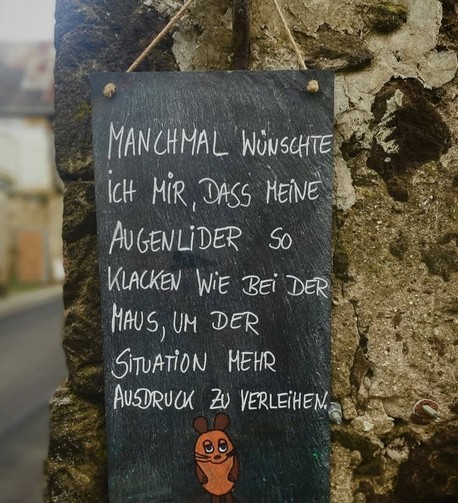 MANCHMAL WÜNSCHTE
ICH MIR, DASS MEINE
AUGENLIDER SO
KLACKEN WIE BEI DER
MAUS, UM DER
SITUATION MEHR
AUSDRUCK ZU VERLEIHEN.